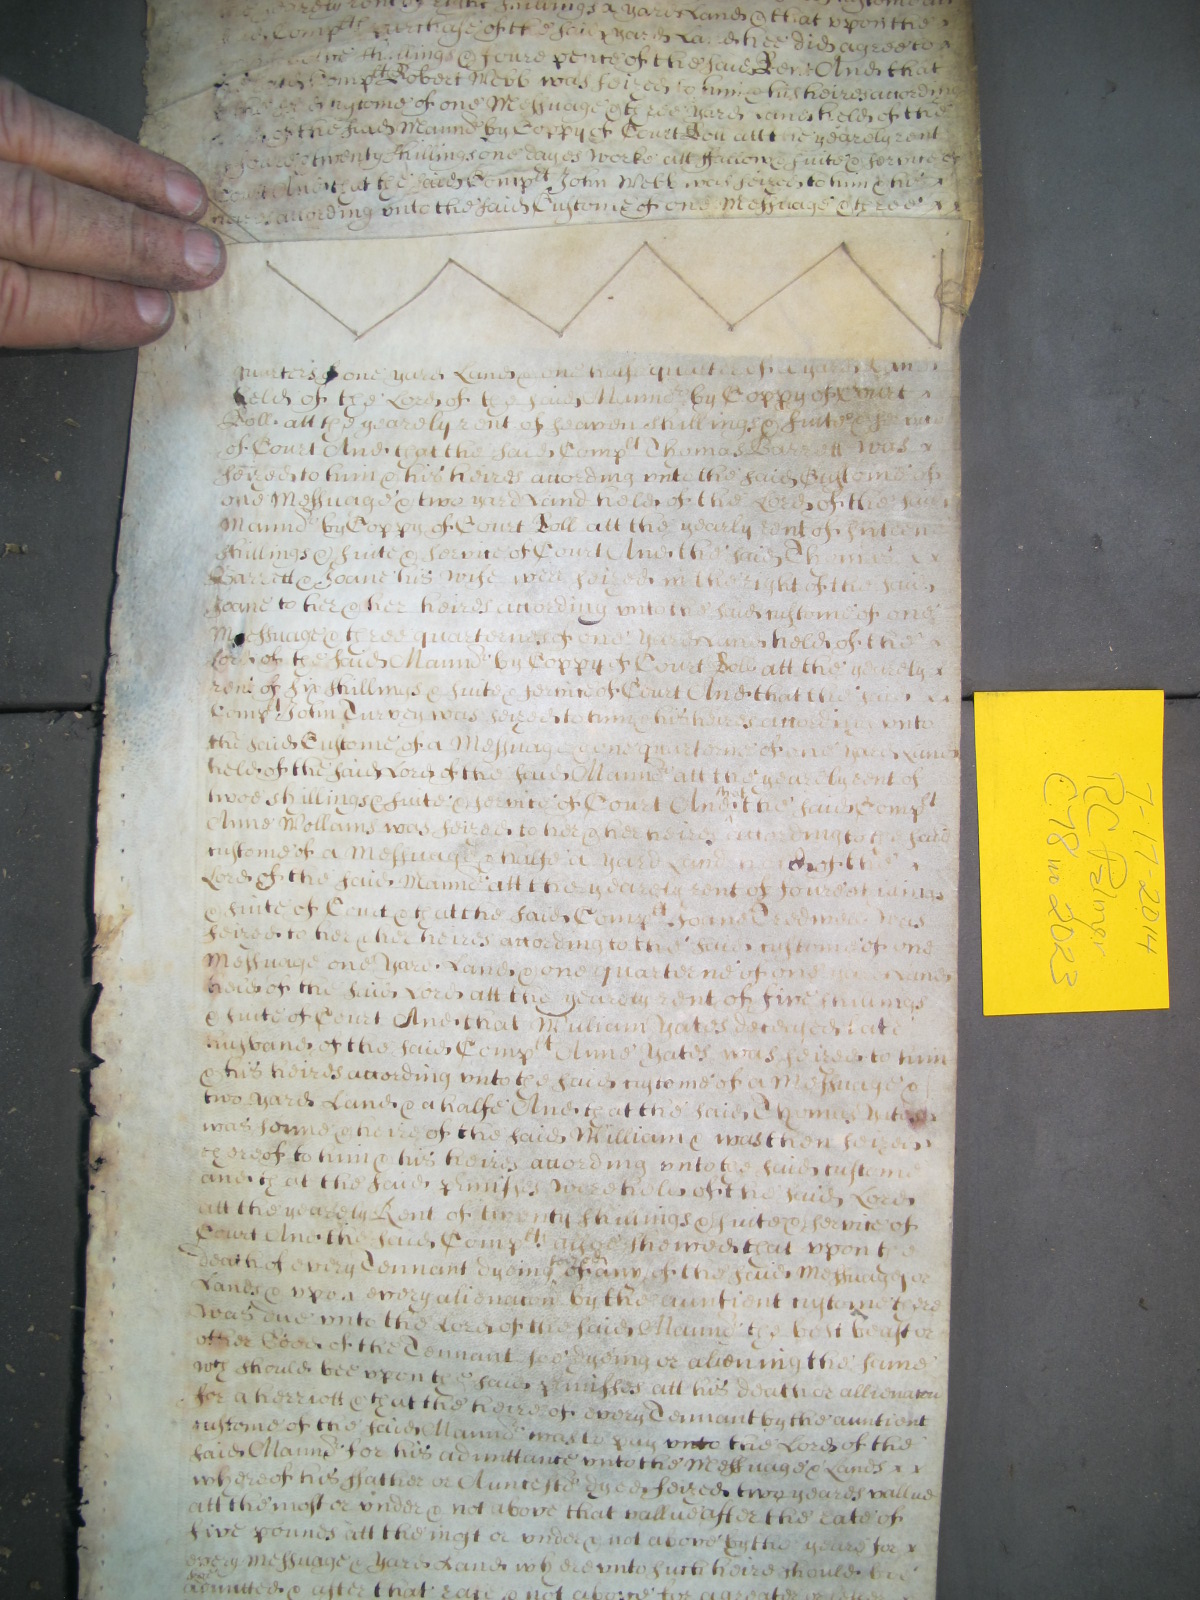 the yearely rent of eight shillings & yard Land & that upon the x
said Compl<sup>ts</sup> purchase of the said yard Land hee did agree to x
shillings & foure pence of the said Rent And that
Comp<sup>lt</sup> Robert Webb was seized to him & his heires according
Custome of one Messuage & three yard Land held of the
of the said Mann<sup>r</sup> by Coppy of Court Roll att the yearely rent
twenty shillings one dayes worke att & suite & service of
Court And that the said Comp<sup>lt</sup> John Webb was seized to him & his x
heires according unto the said Custome of one Messuage & three x x
quarters of one yard Land & one halfe quarter of a yard Land
held of the Lord of the said Mann<sup>r</sup> by Coppy of Court x
Roll att the yearely rent of seaven shillings & suite & service
of Court And that the said Comp<sup>lt</sup> Thomas Barrett was x
seized to him & his heires according unto the said Custome of
one Messuage & two yard Land held of the Lord of the said
Mann<sup>r</sup> by Coppy of Court Roll att the yearly rent of
shillings & suite & service of Court And the said Thomas x x
Barrett & Joane his wife were seized in the right of the said
Joane to her & her heires according unto the said custome of one
Messuage & three quarternes of one yard Land held of the x
Lord of the said Mann<sup>r</sup> by Coppy of Court Roll att the yearely x
rent of six shillings & suite & service of Court And that the said x x
Comp<sup>lt</sup> John Turvey was seized to him & his heires according unto
the said Custome of a Messuage & one quarterne of one yard Land
held of the said Lord of the said Mann<sup>r</sup> att the yearely rent of
twoe shillings & suite & service of Court And that the said Comp<sup>lt</sup>
Anne Wollams was seized to her & her heires according to the said
custome of a Messuage & halfe a yard Land held of the x
Lord of the said Mann<sup>r</sup> att the yearely rent of foure shillings
& suite of Court & that the said Comp<sup>lt</sup> Joane Tredwell was
seized to her & her heires according to the said custome of one
Messuage one yard Land & one quarterne of one yard Land
held of the said Lord att the yearely rent of five shillings
& suite of Court And that William Yates deceased late
husband of the said Comp<sup>lt</sup> Anne Yates was seized to him
& his heires according unto the said custome of a Messuage &
two yard Land & a halfe And that the said Thomas Yates
was sonne & heire of the said William & was then seized
thereof to him & his heires according unto the said custome
and that the said p<sup></sup>misses were held of the said Lord
att the yearely Rent of twenty shillings & suite & service of
Court And the said Comp<sup>lts</sup> alsoe shewed that upon the
death of every Tennant dyeing seized of any of the said Messuages or
Lands & upon every alienacon by the auntient custome there
was due unto the Lord of the said Mann<sup>r</sup> the best beast or
other Good of the Tennant soe dyeing or aliening the same
w<sup>ch</sup> should bee upon the said p<sup></sup>misses att his death or allienacon
for a herriott & that the heire of every Tennant by the auntient
custome of the said Mann<sup>r</sup> was to pay unto the Lord of the
said Mann<sup>r</sup> for his admittance unto the Messuage & Lands x x
whereof his ffather or Auncesto<sup>r</sup> dyed seized two yeares vallue
att the most or under & not above that vallue after the rate of
five pounds att the most or under & not above by the yeare for x
every Messuage & yard Land whereunto such heire should be
admitted & after that rate & not above for a greater or lesser
7-17-2014
RC Palmer
C78 in 2023